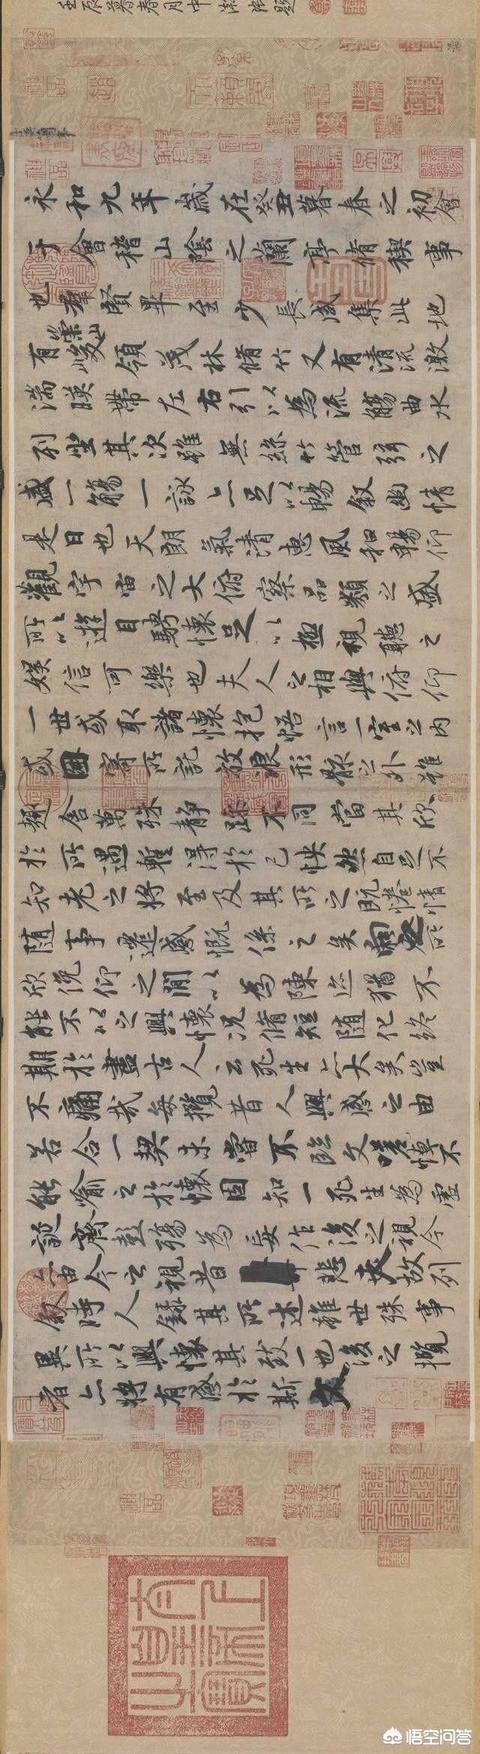 永和九年歲在癸丑暮春之初會
于會稽山陰之蘭亭脩稧事
也羣賢畢至少長咸集此地
有崇山峻領茂林脩竹又有清流激
湍暎帶左右引以為流觴曲水
列坐其次雖無絲竹管弦之
盛一觴一詠亦足以暢敘幽情
是日也天朗氣清惠風和暢仰
觀宇宙之大俯察品類之盛
所以遊目騁懷足以極視聽之
娛信可樂也夫人之相與俯仰
一世或取諸懷抱悟言一室之內
或因寄所託放浪形骸之外雖
趣舍萬殊靜躁不同當其欣
於所遇蹔得於己怏然自足不
知老之將至及其所之既惓情
隨事遷感慨係之矣向之所
欣俛仰之閒以為陳迹猶不
能不以之興懷況脩短隨化終
期於盡古人云死生亦大矣豈
不痛哉每攬昔人興感之由
若合一契未嘗不臨文嗟悼不
能喻之於懷固知一死生為虛
誕齊彭殤為妄作後之視今
亦由今之視昔悲夫故列
敘時人錄其所述雖世殊事
異所以興懷其致一也後之攬
者亦將有感於斯文
太上皇帝之寶
悟空问答